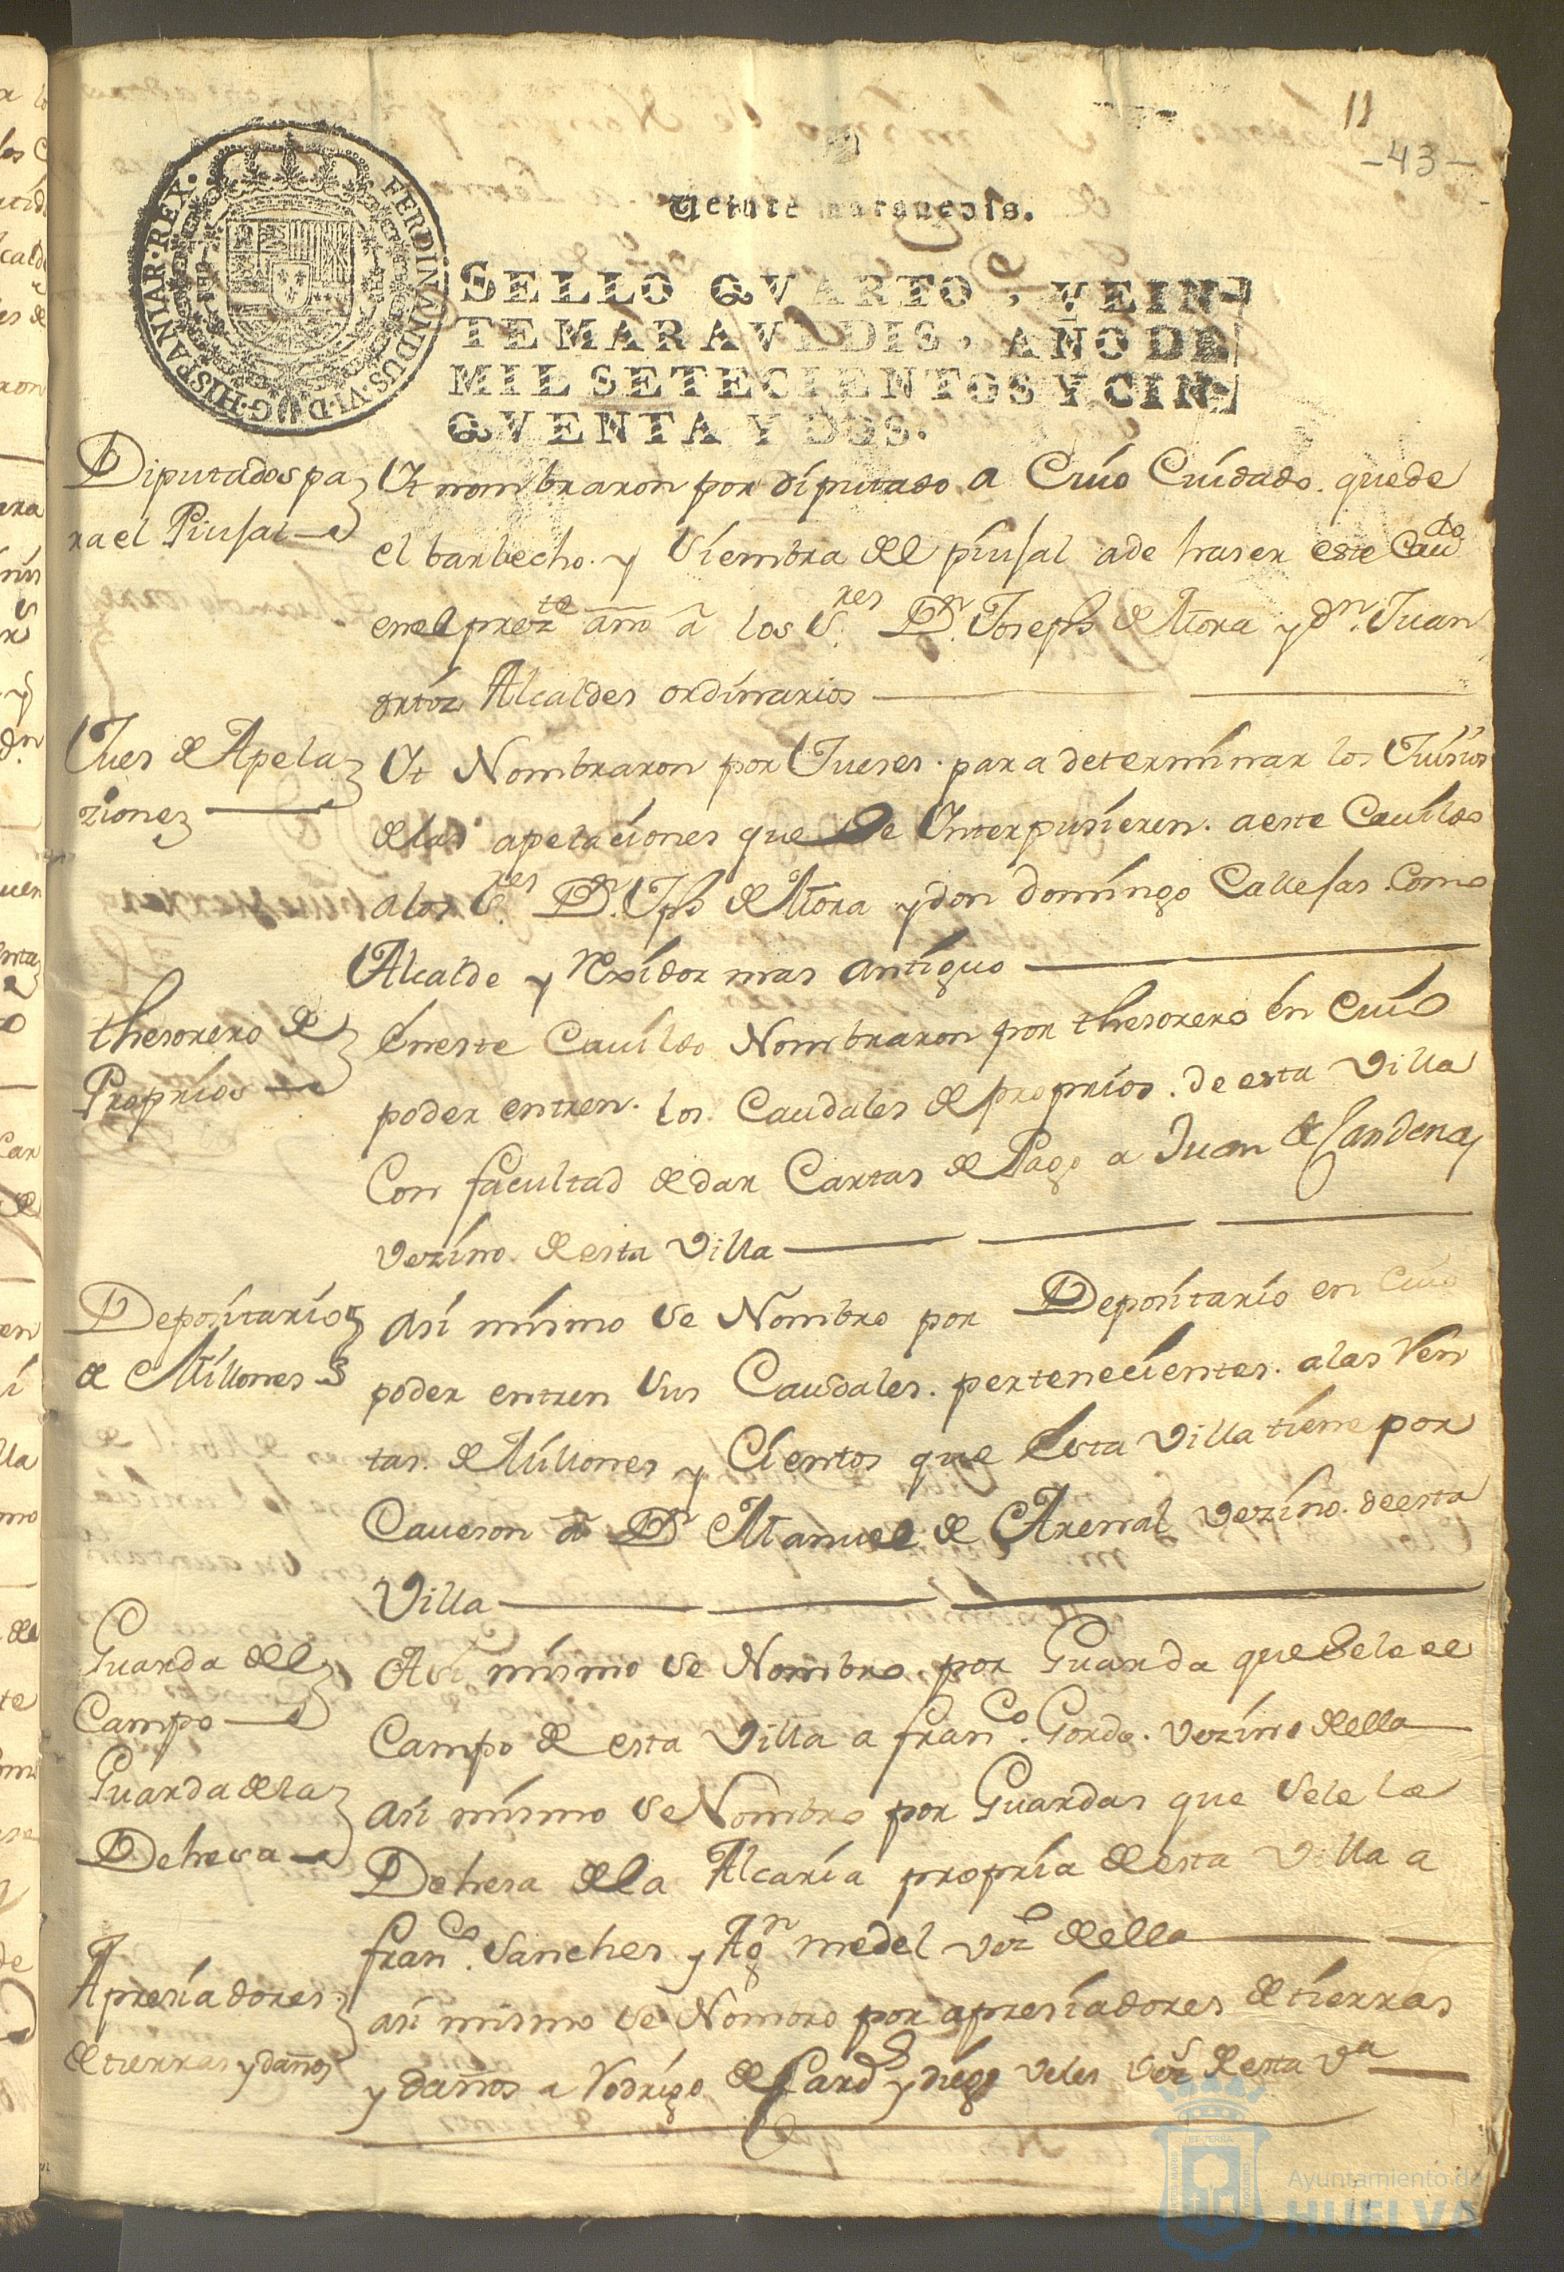 11
-43-
Veinte maravedis.
FERDINANDUS·VI·D·G·HISPANIAR·REX·
SELLO QVARTO, VEIN-
TE MARAVEDIS, AÑO DE
MIL SETECIENTOS Y CIN-
QVENTA Y DOS.
Diputados pa
ra el Piusal
Yt nombraron por diputado a Cuio Cuidado quede
el barbecho y siembra del piusal a de haser este Caudo
en el prezte año a los Sres Dn Joseph de Mora y dn Juan
ortiz Alcaldes ordinarios
Jues de Apela
ziones
Yt Nombraron por Jueses para determinar los Juisios
de las apelaciones que se Interpusieren a este Cauildo
a los Sres Dn Jph de Mora y don domingo Callesas Como
Alcalde y Rexidor mas antiguo
thesorero de
Proprios
En este Cauildo Nombraron por thesorero en Cuio
poder entren los Caudales de proprios de esta Villa
Con facultad de dar Cartas de Pago a Juan de Cardenas
vezino de esta Villa
Depositario
de Millones
Asi mismo se Nombro por Depositario en Cuio
poder entren sus Caudales pertenecientes a las Ren
tas de Millones y Cientos que Esta Villa tiene por
Caueson a Dn Manuel de Arenal vezino de esta
Villa
Guarda del
Campo
Asi mismo se Nombro por Guarda que Sele el
Campo de esta Villa a Franco Gordo vezino della
Guarda de la
Dehesa
Asi mismo se Nombro por Guardas que Sele la
Dehesa de la Alcaria propria de esta Villa a
Franco Sanches y Agn medel vezo della
Apresiadores
de tierras y daños
asi mismo se Nombro por apresiadores de tierras
y daños a Rodrigo de Cards y diego veles vezs de esta Va
Ayuntamiento de
HUELVA